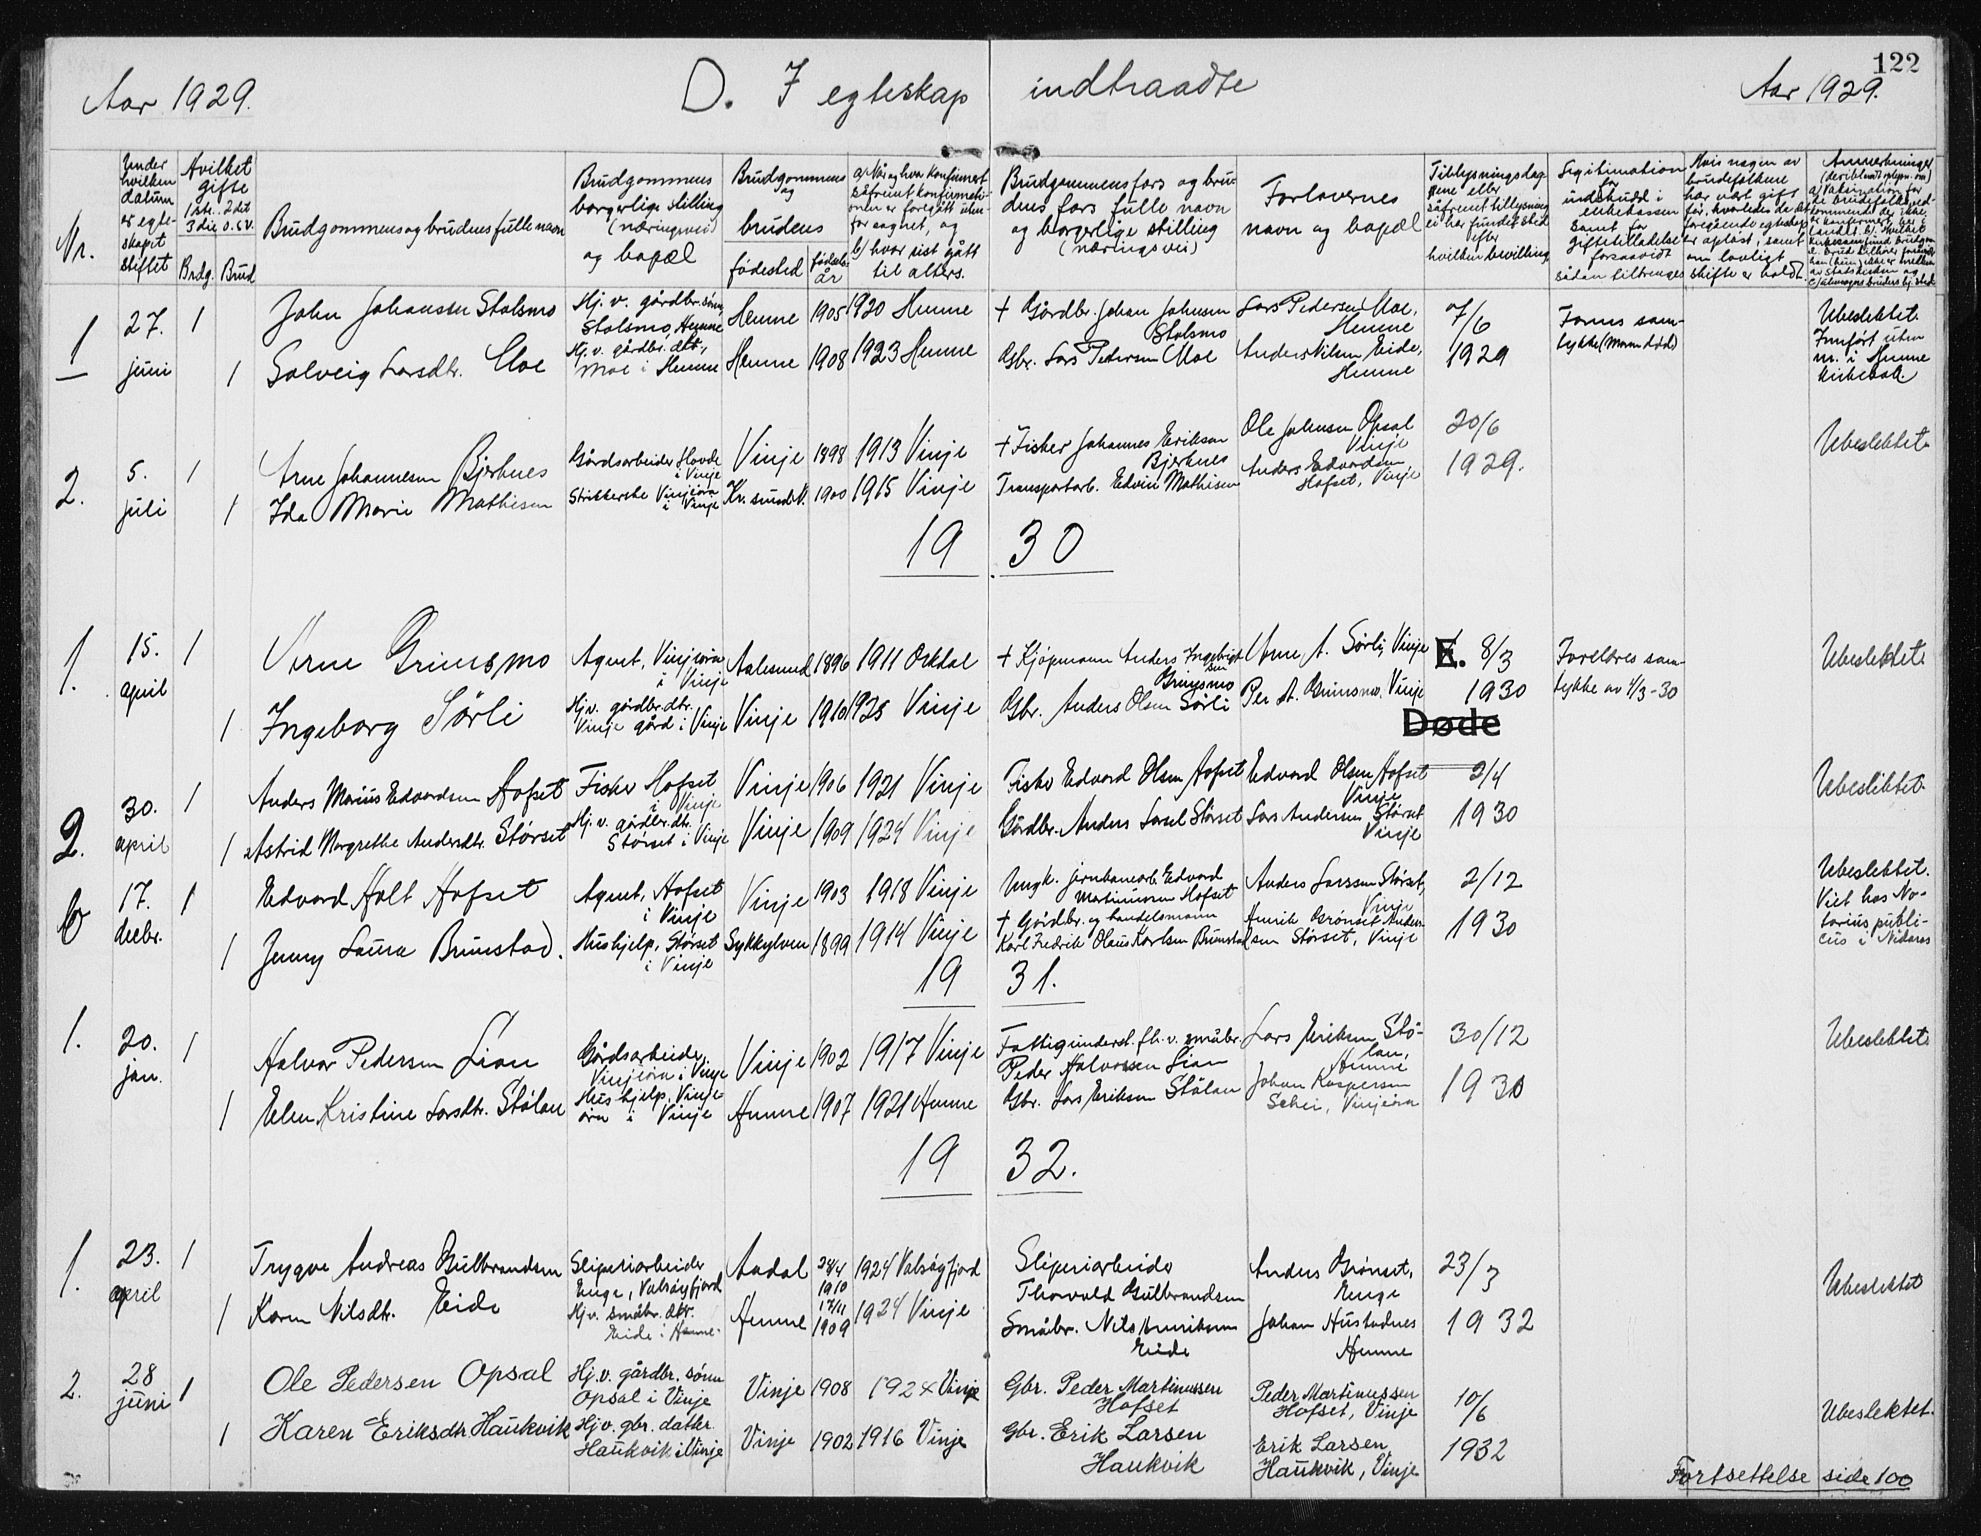 122
Aar 1929. D. I egteskap indtraadte Aar 1929.
Nr.
Under hvilken datum er egteskapet stiftet
Avilket gifte 1ste. 2det 3die o.s.v.
Brdg. Brud
Brudgommens og brudens fulle navn
Brudgommens borgerlige stilling (næringsvei) og bopæl
Brudgommens og brudens
fødested fødselsår
a) Når og hvor konfirmert
såfremt konfirmationen er foregått utenfor sognet, og
b) hvor sist gått til alters.
Brudgommens fars og brudens fars fulle navn og borgerlige stilling (næringsvei)
Forlovernes navn og bopæl
Tillysningsdagene eller såfremt tillysning ei har fundet sted efter hvilken bevilling
Legitimation for indskudd i enkekassen samt for giftetilladelse forsaavidt sådan tiltrænges
Hvis nogen av brudefolkene har vært gift før, hvorledes da det foregående egteskap er opløst, samt om lovligt skifte er holdt.
Anmerkninger
1
27. juni
1
John Johansen Stolsmo
Hj. v. gårdbr. sønn Stolsmo, Hemne
Hemne 1905 1920 Hemne
+ Gårdbr. Johan Johnsen Stolsmo
Lars Pedersen Moe, Hemne
7/6
Farens samtykke (Moren død)
Ubeslektet.
Innført uten nr. i Hemne kirkebok.
1
Solveig Larsdtr. Moe
Hj. v. gårdbr. dtr., Moe i Hemne
Hemne 1908 1923 Hemne
Gbr. Lars Pedersen Moe
Anders Nilsen Eide, Hemne
1929
2.
5. juli
1
Arne Johannesen Bjerknes
Gårdsarbeider Hovde i Vinje
Vinje 1898 1913 Vinje
+ Fisker Johannes Eriksen Bjerknes
Ole Johnsen Opsal Vinje
20/6
Ubeslektet
1
Ida Marie Mathisen
Strikkerske Vinjeøra i Vinje
Kr.sund N. 1900 1915 Vinje
Transportarb. Edvin Mathisen
Anders Edvardsen Hofset, Vinje
1929.
19 30
1.
15. april
1
Arne Grimsmo
Agent, Vinjeøra i Vinje
Aalesund 1896 1911 Orkdal
+ Kjøpmann Anders Ingebrigtsen Grimsmo
Arne A. Sørli, Vinje
E. 8/3
Foreldres samtykke av 4/3-30
Ubeslektet
1
Ingeborg Sørli
Hj.v. gårdbr. dtr. Vinje gård i Vinje
Vinje 1910 1925 Vinje
Gbr. Anders Olsen Sørli
Per A. Grimsmo. Vinje
1930
Døde
2.
30. april
1
Anders Marius Edvardsen Hofset
Fisker Hofset i Vinje
Vinje 1906 1921 Vinje
Fisker Edvard Olsen Hofset
Edvard Olsen Hofset Vinje
2/4
Ubeslektet
1
Astrid Margrethe Andersdtr. Størset
Hj. v. gårdbr. dtr. Størset i Vinje
Vinje 1909 1924 Vinje
Gårdbr. Anders Larsen Størset
Lars Andersen Størset Vinje
1930
17. decbr.
1
Edvard Holt Hofset
Agent, Hofset i Vinje
Vinje 1903 1918 Vinje
Ungk. jernbanearb. Edvard Martinussen Hofset
Anders Larssen Størset, Vinje
2/12
Ubeslektet.
Viet hos Notarius publicus i Nidaros
1
Jenny Laura Brunstad.
Hushjelp, Størset i Vinje
Sykkylven 1899 1914 Vinje
+ Gårdbr. og handelsmann Karl Fredrik Olaus Karlsen Brunstad
Henrik Grønset Andersen Størset, Vinje
1930
19 31.
1.
20. jan.
1
Halvor Pedersen Lian
Gårdsarbeider Vinjeøra i Vinje
Vinje 1902 1917 Vinje
Fattigunderst. fh. v. småbr. Peder Halvorsen Lian
Lars Eriksen Stølan, Hemne
30/12
Ubeslektet
1
Elen Kristine Larsdtr. Stølan
Hushjelp, Vinjeøra i Vinje
Hemne 1907 1921 Hemne
Gbr. Lars Eriksen Stølan
Johan Kaspersen Schei, Vinjeøra
1930
19 32.
1.
23. april
1
Trygve Andreas Gulbrandsen
Sliperiarbeider Enge, Valsøyfjord
Aadal 24/4 1910 1924 Valsøyfjord
Sliperiarbeider Thorvald Gulbrandsen
Anders Grønset, Enge
23/3
Ubeslektet
1
Karen Nilsdtr. Eide
Hj.v. småbr. dtr. Eide i Hemne.
Hemne 17/11 1909 1924 Vinje
Småbr. Nils Henriksen Eide
Johan Hustadnes Hemne
1932
2.
28 juni
1
Ole Pedersen Opsal
Hj.v. gårdbr. sønn Opsal i Vinje
Vinje 1908 1924 Vinje
Gbr. Peder Martinussen Hofset
Peder Martinussen Hofset, Vinje
10/6
Ubeslektet.
1
Karen Eriksdtr Haukvik
Hj v. gbr. datter Haukvik i Vinje
Vinje 1902 1916 Vinje
Gbr. Erik Larsen Haukvik
Erik Larsen Haukvik, Vinje
1932
Fortsettelse side 100